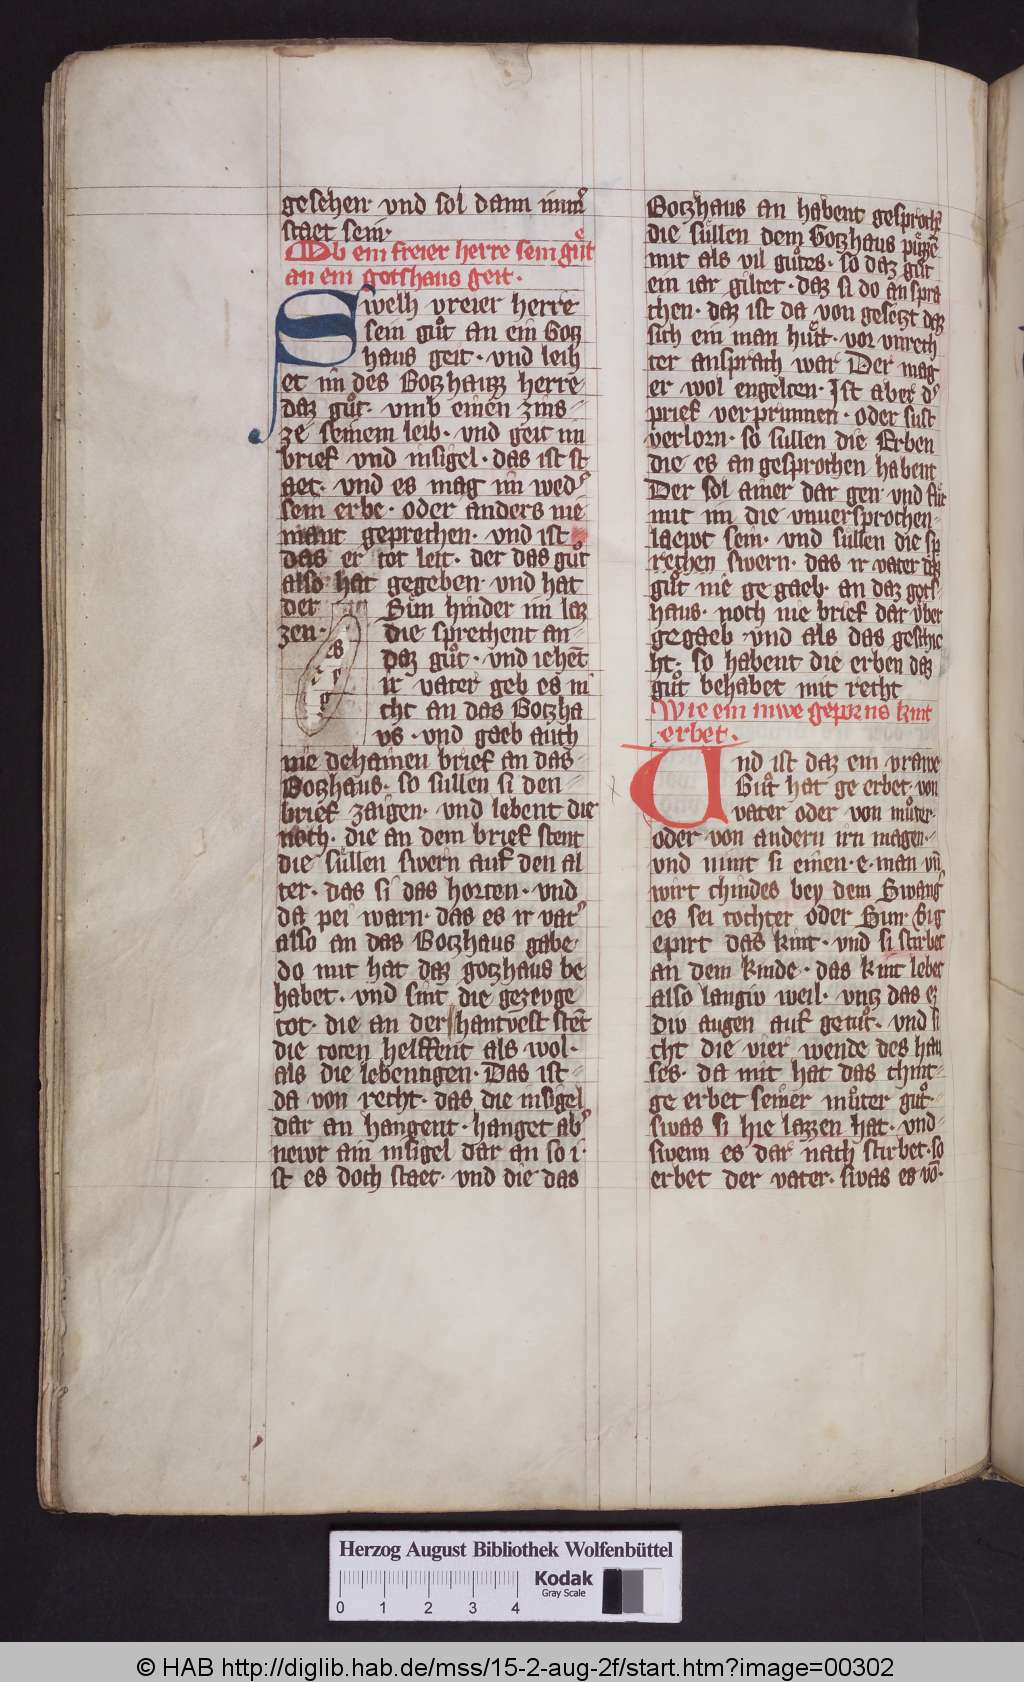 gesehen · vnd sol dann imm͛
staet sein ·
Ob ein freier herre sein gůt
an ein gotshaus geit ·
Swelh vreier herre
sein gůt an ein Gotz
haus geit · vnd leih
et im des Gotzhauzz herre
daz gůt · vmb einen zins
ze seinem leib · vnd geit im
brief vnd insigel · das ist st
aet · vnd es mag im wed͛
sein erbe · oder anders nie
mant geprechen · vnd ist
das er tot leit · der das gůt
also hat gegeben · vnd hat
der Sün hinder im laz
zen · die sprechent an
daz gůt · vnd iehen̄t
ir vater geb es ni
cht an das Gotzha
vs · vnd gaeb auch
nie dehainen brief an das
Gotzhaus · so sullen si den
brief zaigen · vnd lebent die
noch · die an dem brief stent
die süllen swern auf den al
ter · das si das horten · vnd
da pei warn · das es ir vat͛
also an das Gotzhaus gabe ·
do mit hat daz gotzhaus be
habet · vnd sint die gezevge
tot · die an der hantvest sten̄t
die toten helffent als wol ·
als die lebentigen · Das ist
da von recht · das die insigel
dar an hangent · hanget ab͛
newr ain insigel dar an so i
st es doch staet · vnd die das
Gotzhaus an habent gesproch̄
die süllen dem Gotzhaus püzzē
mit als vil gůtes · so daz gůt
ein iar giltet · daz si do an spra
chen · daz ist da von gesetzt daz
sich ein man hüt · vor vnrech
ter ansprach war Der mag
er wol engelten · Ist aber d͛
prief verprunnen · oder sust
verlorn · so sullen die Erben
die es an gesprochen habent
Der sol ainer dar gen · vnd
mit im die vnuersprochen
laewt sein · vnd sullen die sp
rechen swern · das ir vater daz
gůt nie ge gaeb · an daz gots
haus · noch nie brief dar vber
gegaeb · vnd als das geschie
ht · so habent die erben daz
gůt behabet mit recht
Wie ein niwe geporns kint
erbet ·
Und ist daz ein vrawe
Gůt hat ge erbet · von
vater oder von můter ·
oder von andern irn magen ·
vnd nimt si einen · e · man vn̄
wirt chindes bey dem Swang͛
es sei tochter oder Sun · Sig
epirt das kint · vnd si stirbet
an dem kinde · das kint lebet
also langiv weil · vntz das ez
div augen auf getůt · vnd si
cht die vier wende des hau
ses · da mit hat das chint
ge erbet seiner můter gůt ·
swas si hie lazzen hat · vnd
swenn es dar nach stirbet · so
erbet der vater · swas es vō
Herzog August Bibliothek Wolfenbüttel
Kodak
Gray Scale
0 1 2 3 4
© HAB http://diglib.hab.de/mss/15-2-aug-2f/start.htm?image=00302